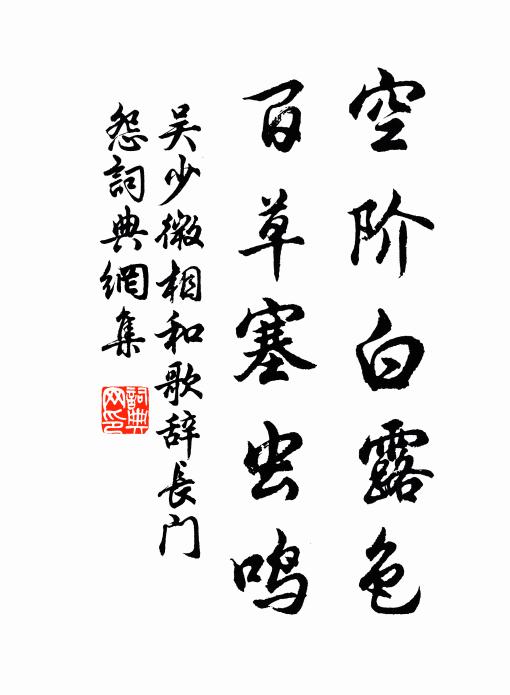 空阶白露色
百草塞虫鸣
吴少微相和歌辞长门
怨词典網集
詞典网印